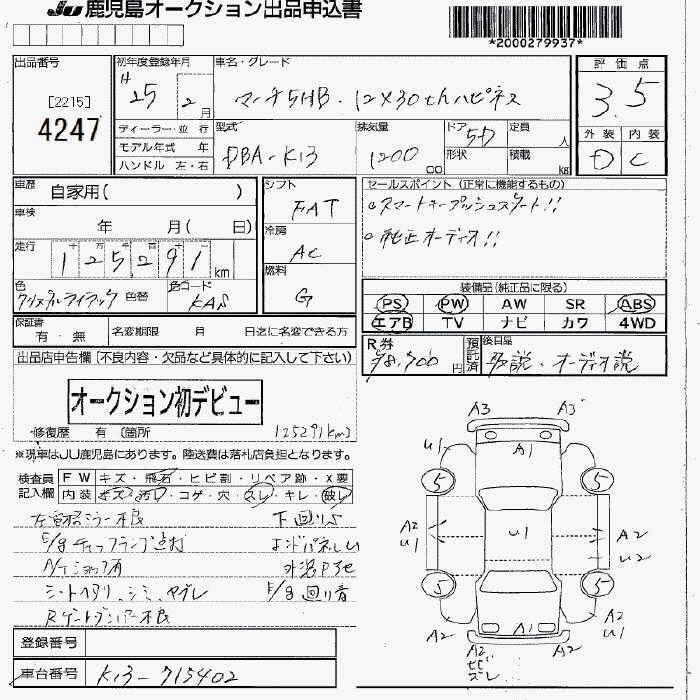 JU 鹿児島オークション出品申込書
*2000279937*
出品番号
[2215]
4247
初年度登録年月
H 25 年 2 月
車名・グレード
マーチ5HB・12X30thハピネス
評価点
3.5
外装 内装
D C
ディーラー・並行
モデル年式 年
ハンドル 左・右
型式
DBA-K13
排気量
1200 cc
ドア 5D
形状
定員 人
積載 kg
車歴
自家用( )
車検 年 月( 日)
走行 十 万 千 百 十
125291 km
色
クリスタルライラック 色替
色コード
KAS
シフト
FAT
冷房
AC
燃料
G
セールスポイント (正常に機能するもの)
○スマートキープッシュスタート!!
○純正オーディオ!!
装備品(純正品に限る)
PS PW AW SR ABS
エアB TV ナビ カワ 4WD
保証書
有・無
名変期限 月 日迄に名変できる方
R券
¥8,700円
預託済
後日品
取説、オーディオ説
出品店申告欄 (不良内容・欠品など具体的に記入して下さい)
オークション初デビュー
修復歴 有 〔箇所
125291km〕
※現車はJU鹿児島にあります。陸送費は落札店負担となります。
検査員
記入欄
FW キズ・飛石・ヒビ割・リペア跡・X要
内装 キズ・汚レ・コゲ・穴・スレ・キレ・破レ
左電格ミラー不良
下回りS
E/gチェックランプ点灯
エンドパネルU
A/Tショック有
シートヘタリ、シミ、ヤブレ
E/g回り音
Rゲートダンパー不良
登録番号
車台番号
K13-715402
A3 A3
A1
U1
5 5
A2
U1
U1
A2
U2
5 5
A2
A1
A2
U1
A2
サビ
ズレ
A2